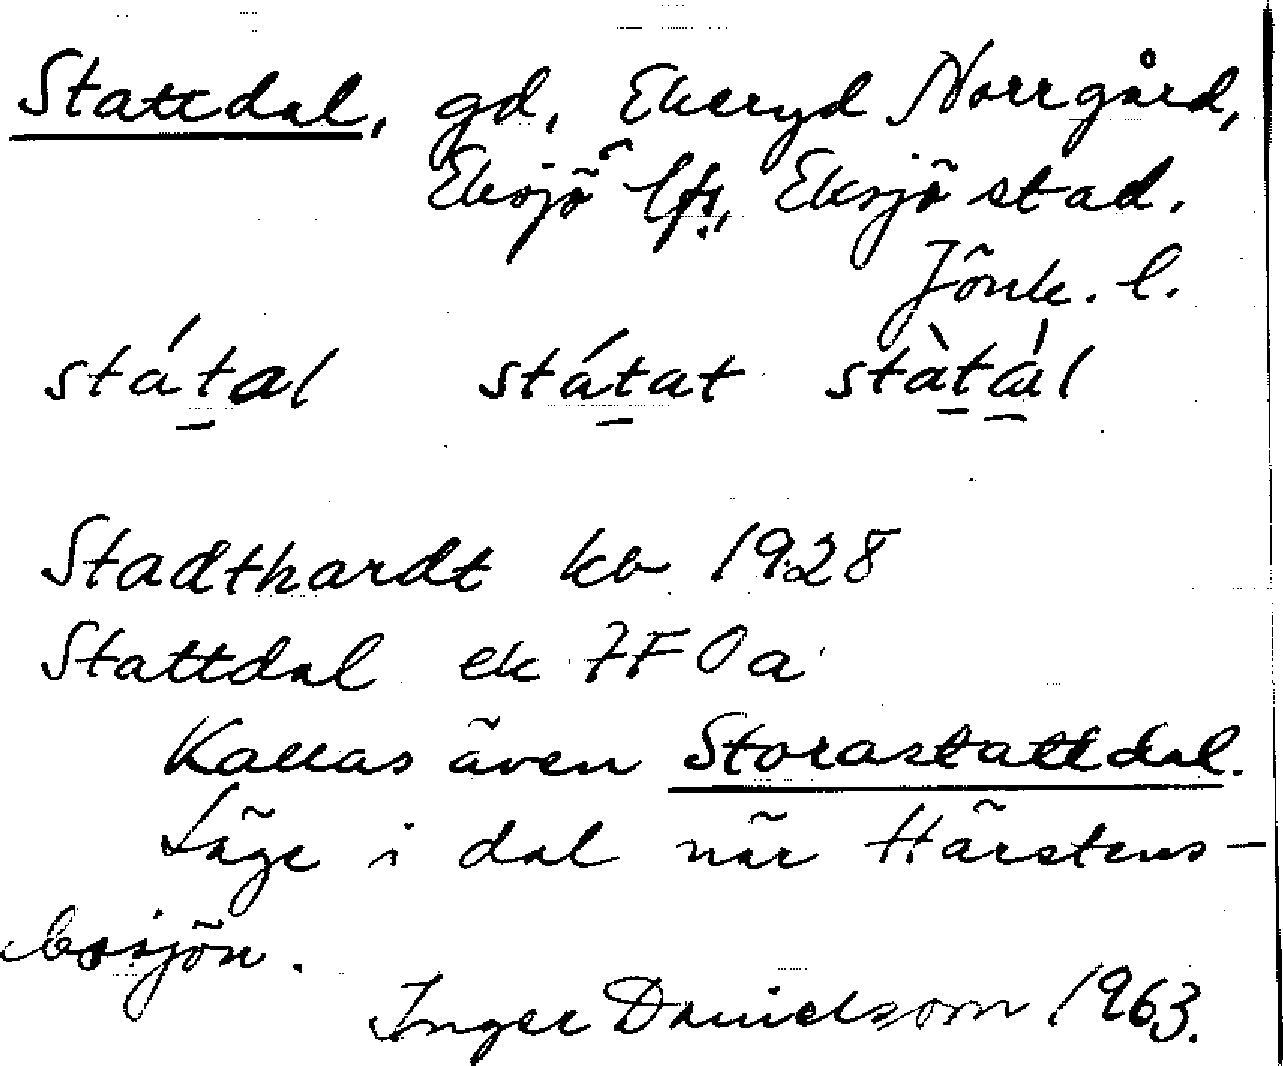 Stattdal, gd, Ekeryd Norrgård,
Eksjö lfs, Eksjö stad.
Jönk. l.
státal státat stàtàl
Stadthardt kb 1928
Stattdal ek 7F 0a
Kallas även Storastattdal.
Läge i dal när Härstens-
bosjön.
Inger Danielsson 1963.